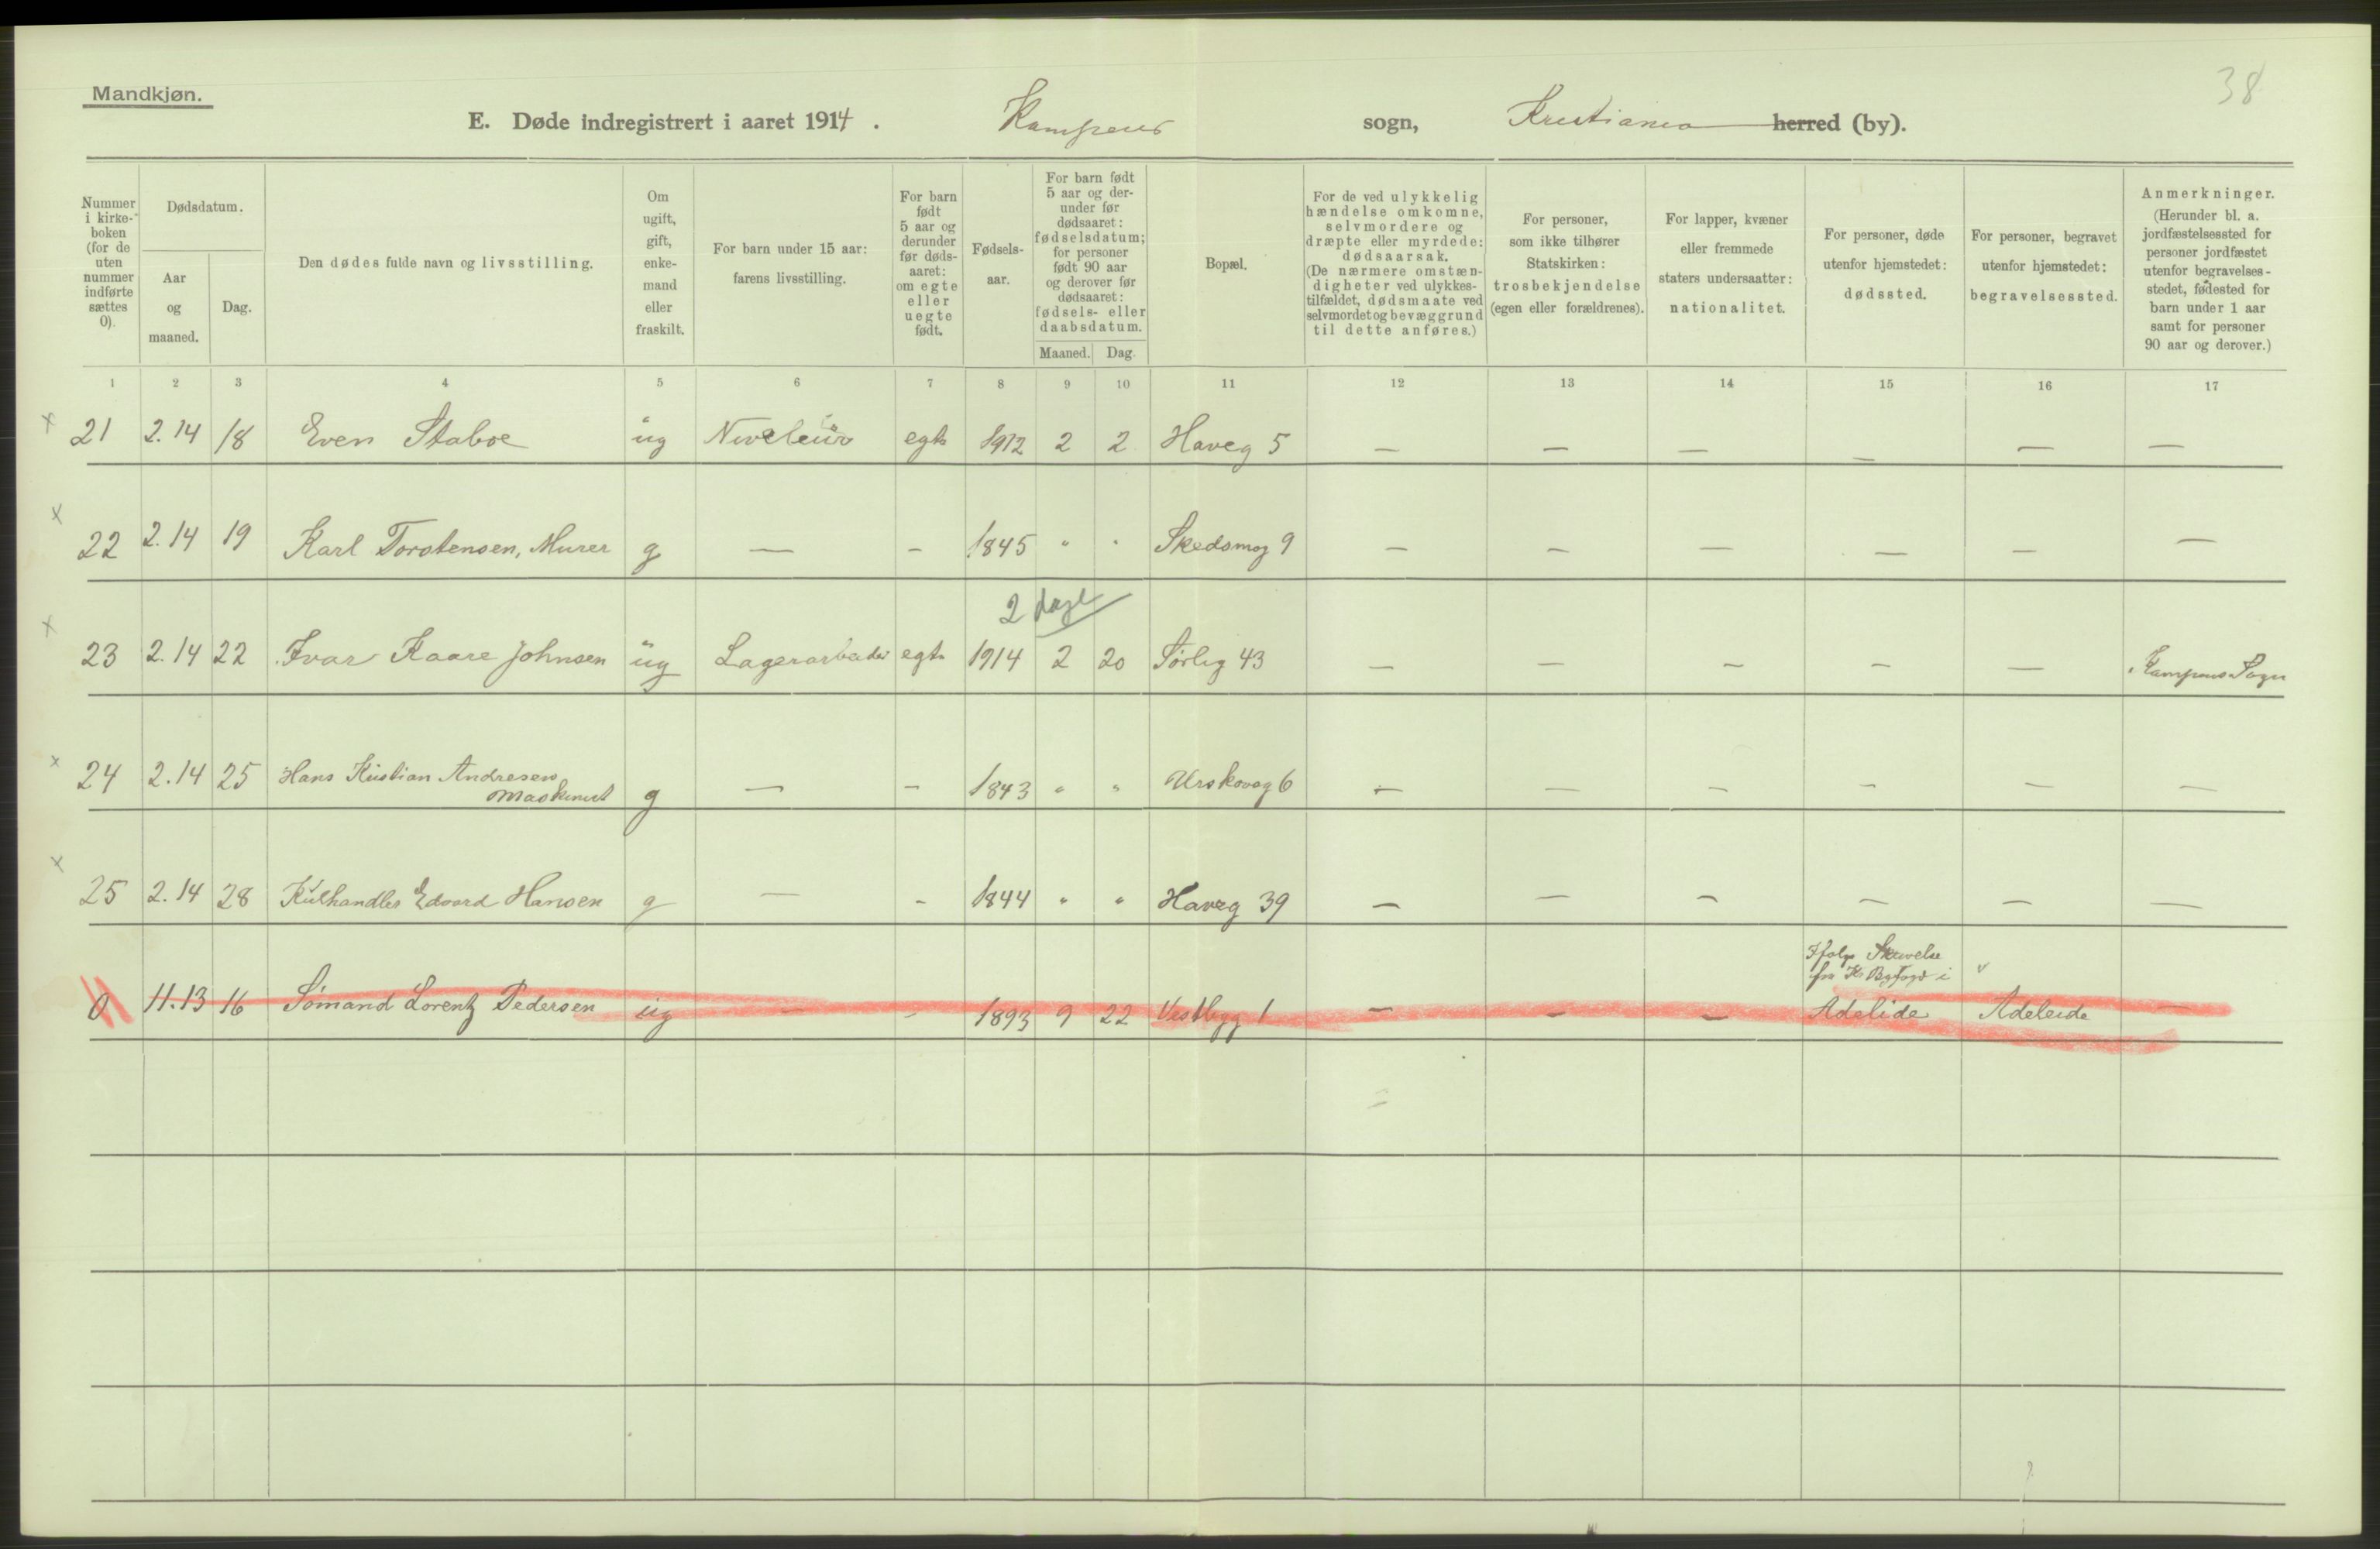 Mandkjøn.
38
E. Døde indregistrert i aaret 1914. Kampens sogn, Kristiania herred (by).
Nummer i kirke-boken (for de uten nummer indførte sættes 0).
Dødsdatum.
Aar og maaned.
Dag.
Den dødes fulde navn og livsstilling.
Om ugift, gift, enke-mand eller fraskilt.
For barn under 15 aar: farens livsstilling.
For barn født 5 aar og derunder før døds-aaret: om egte eller uegte født.
Fødsels-aar.
For barn født 5 aar og der-under før dødsaaret: fødselsdatum; for personer født 90 aar og derover før dødsaaret: fødsels- eller daabsdatum.
Maaned. Dag.
Bopæl.
For de ved ulykkelig hændelse omkomne, selvmordere og dræpte eller myrdede: dødsaarsak. (De nærmere omstæn-digheter ved ulykkes-tilfældet, dødsmaate ved selvmordet og bevæggrund til dette anføres.)
For personer, som ikke tilhører Statskirken: trosbekjendelse (egen eller forældrenes).
For lapper, kvæner eller fremmede staters undersaatter: nationalitet.
For personer, døde utenfor hjemstedet: dødssted.
For personer, begravet utenfor hjemstedet: begravelsessted.
Anmerkninger. (Herunder bl. a. jordfæstelsessted for personer jordfæstet utenfor begravelses-stedet, fødested for barn under 1 aar samt for personer 90 aar og derover.)
1 2 3 4 5 6 7 8 9 10 11 12 13 14 15 16 17
x 21 2.14 18 Even Staboe ug Niveleur egte 1912 2 2 Haveg 5 — — — — — —
x 22 2.14 19 Karl Torstensen, Murer g — — 1845 " " Skedsmog 9 — — — — — —
2 dage
x 23 2.14 22 Ivar Kaare Johnsen ug Lagerarbeider egte 1914 2 20 Sørlig 43 — — — — — Kampens Sogn
x 24 2.14 25 Hans Kristian Andresen
Maskinist g — — 1843 " " Urskovg 6 — — — — — —
x 25 2.14 28 Kulhandler Edvard Hansen g — — 1844 " " Haveg 39 — — — — — —
Ifølge Skrivelse
fra Kr. Byfogd i
0 11.13 16 Sømand Lorentz Pedersen ug — — 1893 9 22 Vestbyg 1 — — — Adelide Adeleide —